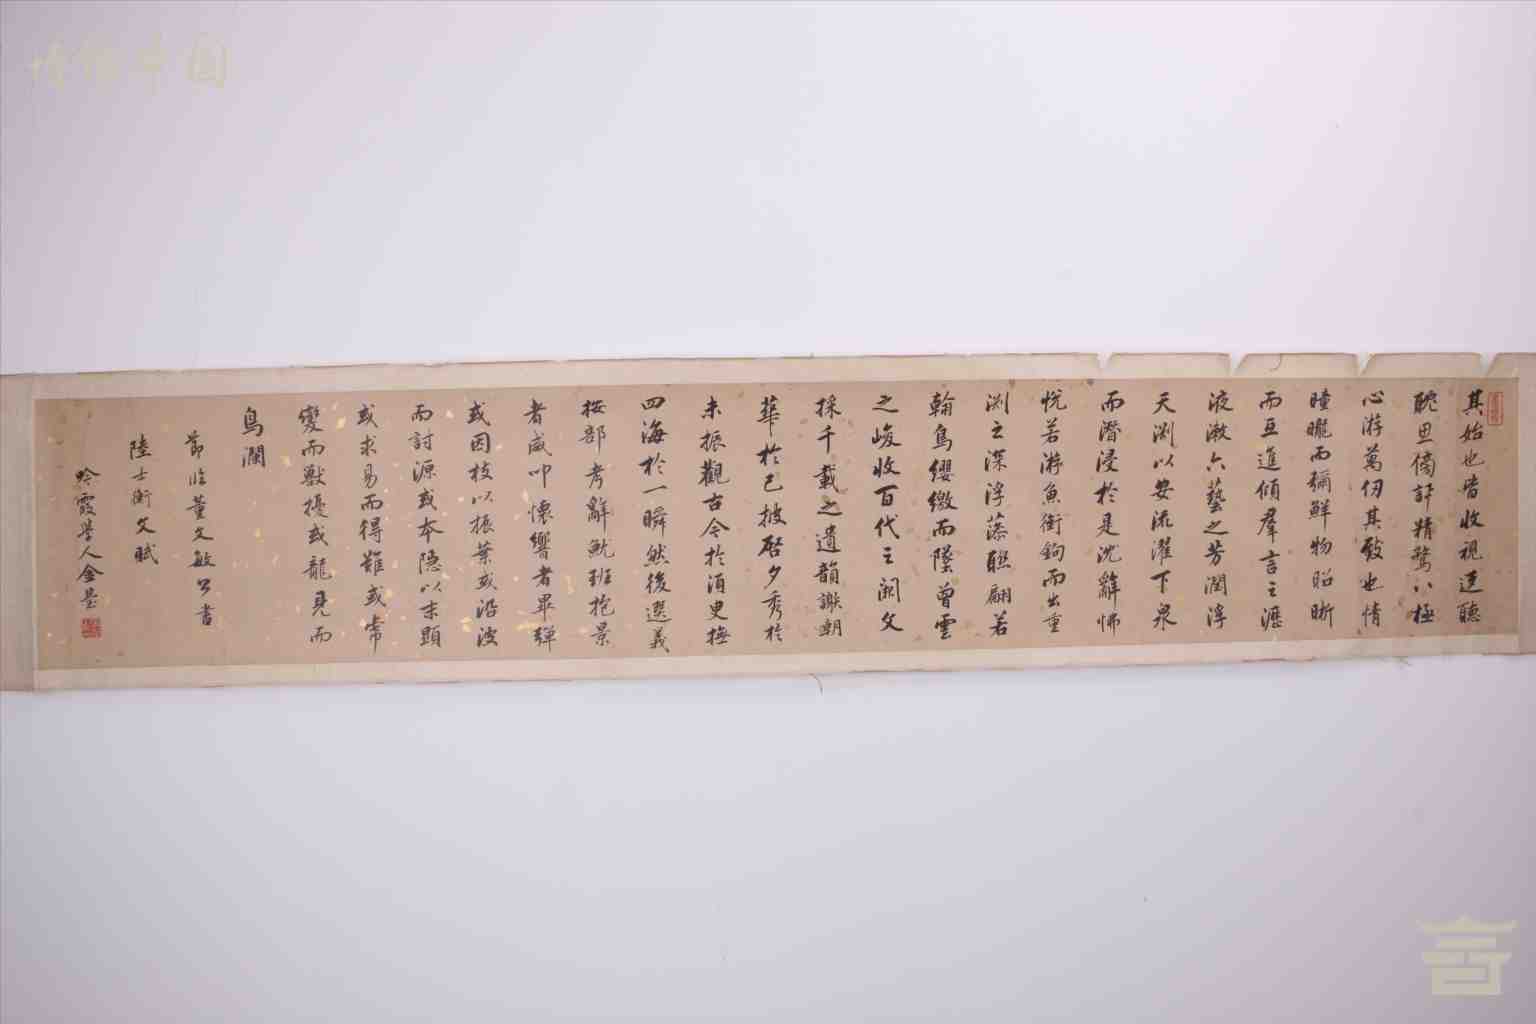 其始也皆收視迋聽
躭思傍訊精騖八極
心游萬仞其致也情
曈曨而彌鮮物昭晰
而互進傾羣言之瀝
液漱六藝之芳潤浮
天渕以安流濯下泉
而潛浸於是沈辭怫
悅若游魚銜鉤而出重
渕之深浮藻聯翩若
翰鳥纓繳而墜曾雲
之峻收百代之闕文
採千載之遺韻謝朝
華於已披啓夕秀於
未振觀古今於須臾撫
四海於一瞬然後選義
按部考辭就班抱景
者咸叩懷響者畢彈
或因枝以振葉或沿波
而討源或本隱以末顯
或求易而得難或常
變而獸擾或龍見而
鳥瀾
節临董文敏公書
陸士衡文賦
吟霞學人金曇